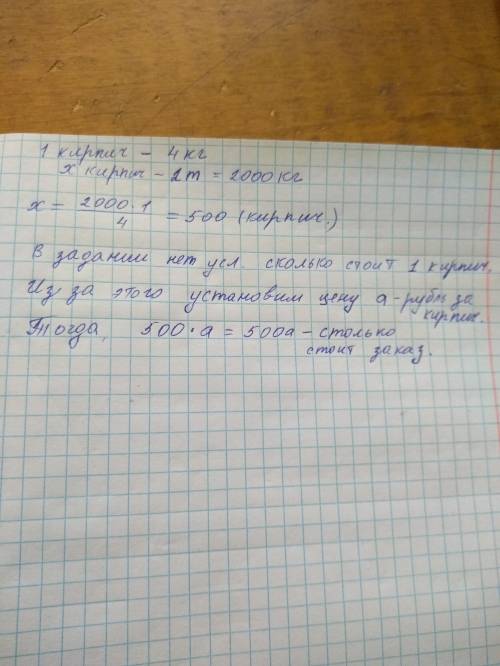 1 кирпич – 4 кг
х кирпич – 2т = 2000 кг
х = 2000·1 / 4 = 500 (кирпич.)
В задании нет усл. сколько стоит 1 кирпич.
Из за этого установим цену а-рубль за кирпич.
Тогда, 500·а = 500а – столько
стоит заказ.